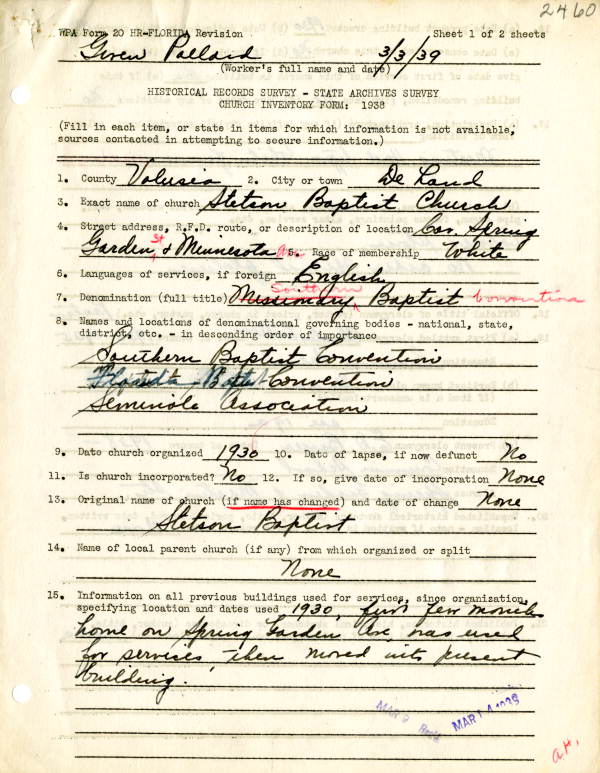 2460
WPA Form 20 HR-FLORIDA Revision Sheet 1 of 2 sheets
Gwen Pollard 3/3/39
(Worker's full name and date)
HISTORICAL RECORDS SURVEY - STATE ARCHIVES SURVEY
CHURCH INVENTORY FORM: 1938
(Fill in each item, or state in items for which information is not available,
sources contacted in attempting to secure information.)
1. County Volusia 2. City or town De Land
3. Exact name of church Stetson Baptist Church
4. Street address, R.F.D. route, or description of location Cor. Spring
Garden St & Minnesota Av. 5. Race of membership White
6. Languages of services, if foreign English
Southern
7. Denomination (full title) Missionary Baptist Convention
8. Names and locations of denominational governing bodies - national, state,
district, etc. - in descending order of importance
Southern Baptist Convention
Florida Baptist Convention
Seminole Association
9. Date church organized 1930 10. Date of lapse, if now defunct No
11. Is church incorporated? No 12. If so, give date of incorporation None
13. Original name of church (if name has changed) and date of change None
Stetson Baptist
14. Name of local parent church (if any) from which organized or split
None
15. Information on all previous buildings used for services, since organization,
specifying location and dates used 1930, first few months
home on Spring Garden Ave, was used
for services, then moved into present
building.
MAR 9 Rec'd MAR 14 1939